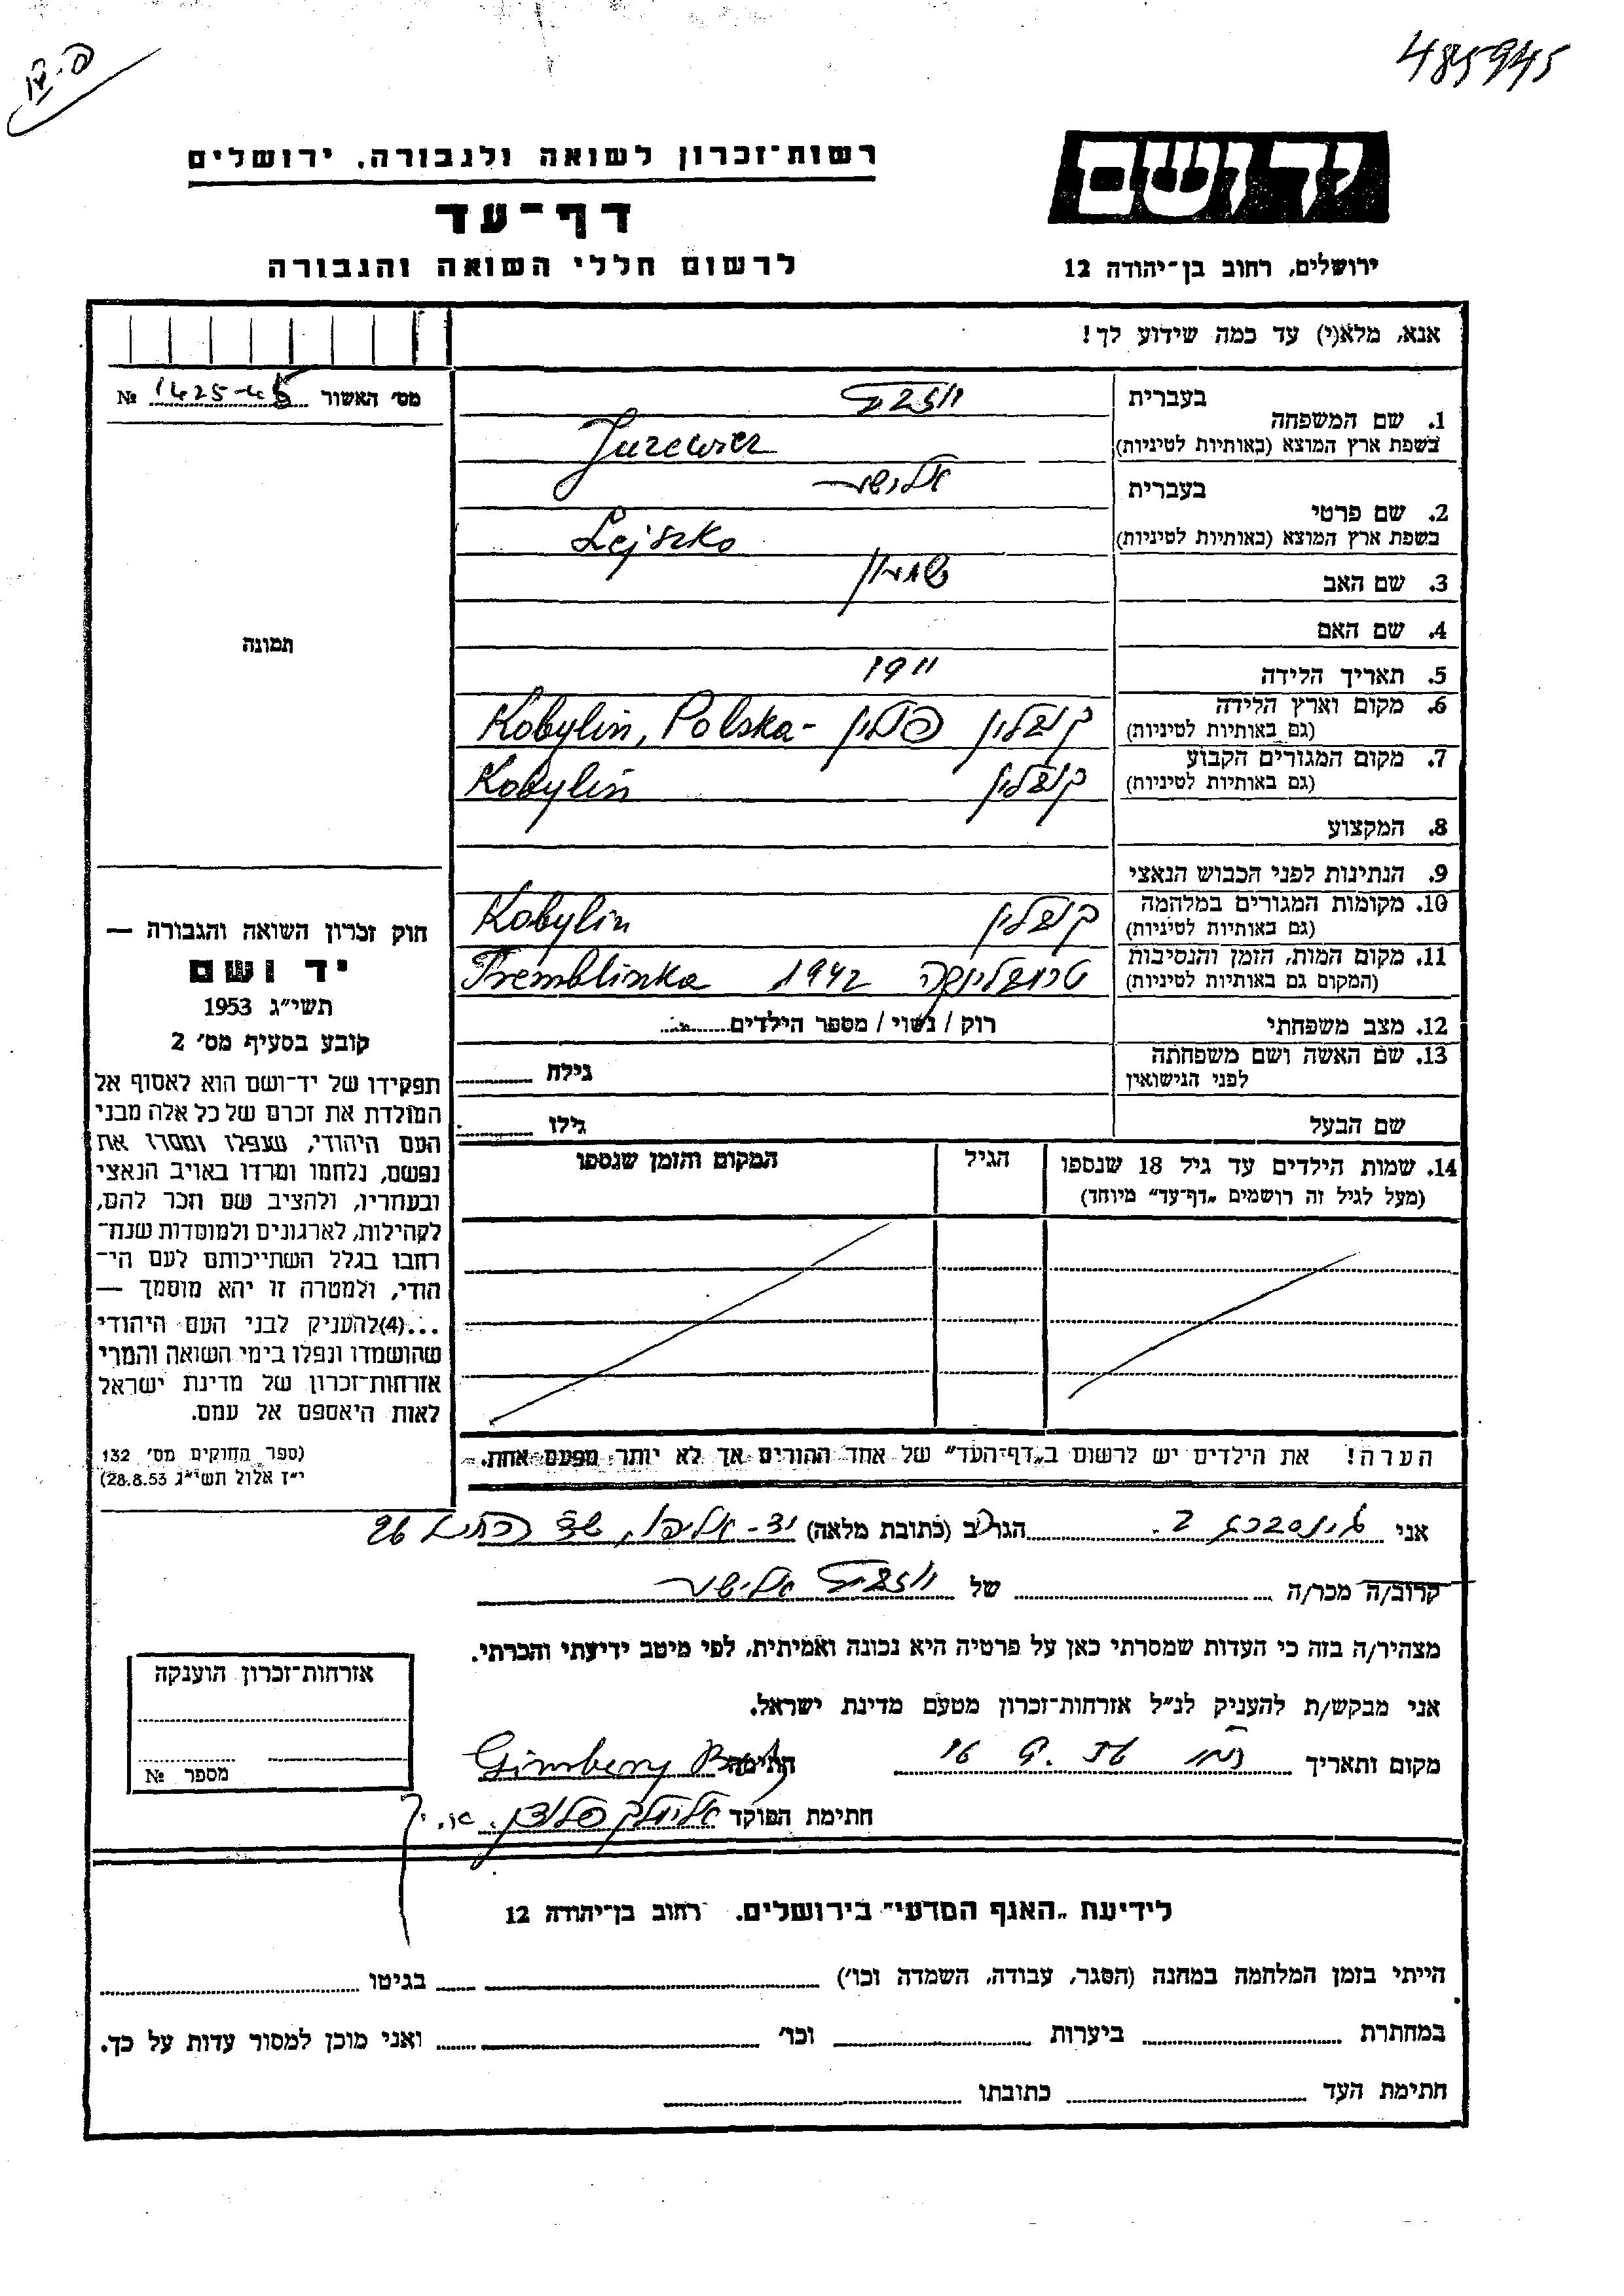 485945
יד ושם
רשות־זכרון לשואה ולגבורה, ירושלים
דף־עד
ירושלים, רחוב בן־יהודה 12
לרשום חללי השואה והגבורה
אנא, מלא(י) עד כמה שידוע לך!
מס׳ האשור 1425-45 №
1. שם המשפחה
בעברית
בשפת ארץ המוצא (באותיות לטיניות) Jurewicz
2. שם פרטי
בעברית
בשפת ארץ המוצא (באותיות לטיניות) Lejszko
3. שם האב שמעון
4. שם האם
5. תאריך הלידה 1911
6. מקום וארץ הלידה
(גם באותיות לטיניות) קובלין פולין - Kobylin, Polska
7. מקום המגורים הקבוע
(גם באותיות לטיניות) קובלין Kobylin
8. המקצוע
9. הנתינות לפני הכבוש הנאצי
10. מקומות המגורים במלחמה
(גם באותיות לטיניות) קובלין Kobylin
11. מקום המות, הזמן והנסיבות
(המקום גם באותיות לטיניות) טרמבלינקה 1942 Tremblinka
12. מצב משפחתי רווק / נשוי / מספר הילדים
13. שם האשה ושם משפחתה
לפני הנישואין גילה
שם הבעל גילו
14. שמות הילדים עד גיל 18 שנספו
(מעל לגיל זה רושמים „דף־עד" מיוחד)
הגיל
המקום והזמן שנספו
הערה! את הילדים יש לרשום ב„דף־העד" של אחד ההורים אך לא יותר מפעם אחת.
תמונה
חוק זכרון השואה והגבורה —
יד ושם
תשי״ג 1953
קובע בסעיף מס׳ 2
תפקידו של יד־ושם הוא לאסוף אל
המולדת את זכרם של כל אלה מבני
העם היהודי, שנפלו ומסרו את
נפשם, נלחמו ומרדו באויב הנאצי
ובעוזריו, ולהציב שם וזכר להם,
לקהילות, לארגונים ולמוסדות שנח־
רבו בגלל השתייכותם לעם הי־
הודי, ולמטרה זו יהא מוסמך —
...(4) להעניק לבני העם היהודי
שהושמדו ונפלו בימי השואה והמרי
אזרחות־זכרון של מדינת ישראל
לאות היאספם אל עמם.
(ספר החוקים מס׳ 132
י״ז אלול תשי״ג 28.8.53)
אני גינסברג ב. הגר/ב (כתובת מלאה) יד-אליהו,
קרוב/ה מכר/ה של
מצהיר/ה בזה כי העדות שמסרתי כאן על פרטיה היא נכונה ואמיתית, לפי מיטב ידיעתי והכרתי.
אני מבקש/ת להעניק לנ״ל אזרחות־זכרון מטעם מדינת ישראל.
מקום ותאריך חתימה
חתימת הפוקד
אזרחות־זכרון הוענקה
מספר №
לידיעת „האגף המדעי" בירושלים. רחוב בן־יהודה 12
הייתי בזמן המלחמה במחנה (הסגר, עבודה, השמדה וכו׳) בגיטו
במחתרת ביערות וכו׳ ואני מוכן למסור עדות על כך.
חתימת העד כתובתו